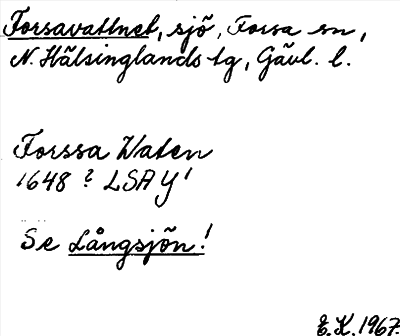 Forsavattnet, sjö, Forsa sn,
N. Hälsinglands tg, Gävl. l.
Forssa Waten
1648 ? LSA Y'
Se Långsjön!
E.K. 1967.